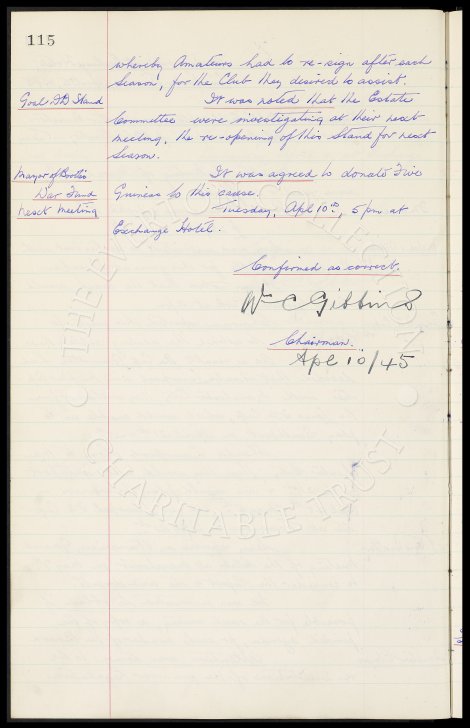 115
whereby Amateurs had to re-sign after each
Season, for the Club they desired to assist.
Goal Stand
It was noted that the Estate
Committee were investigating at their next
meeting, the re-opening of this Stand for next
Season.
Mayor of Bootle's
War Fund
It was agreed to donate Five
Guineas to this cause.
next meeting
Tuesday, Apl 10th, 5 pm at
Exchange Hotel.
Confirmed as correct.
Wm C Gibbins
Chairman.
Apl 10/45
THE EVERTON COLLECTION
CHARITABLE TRUST